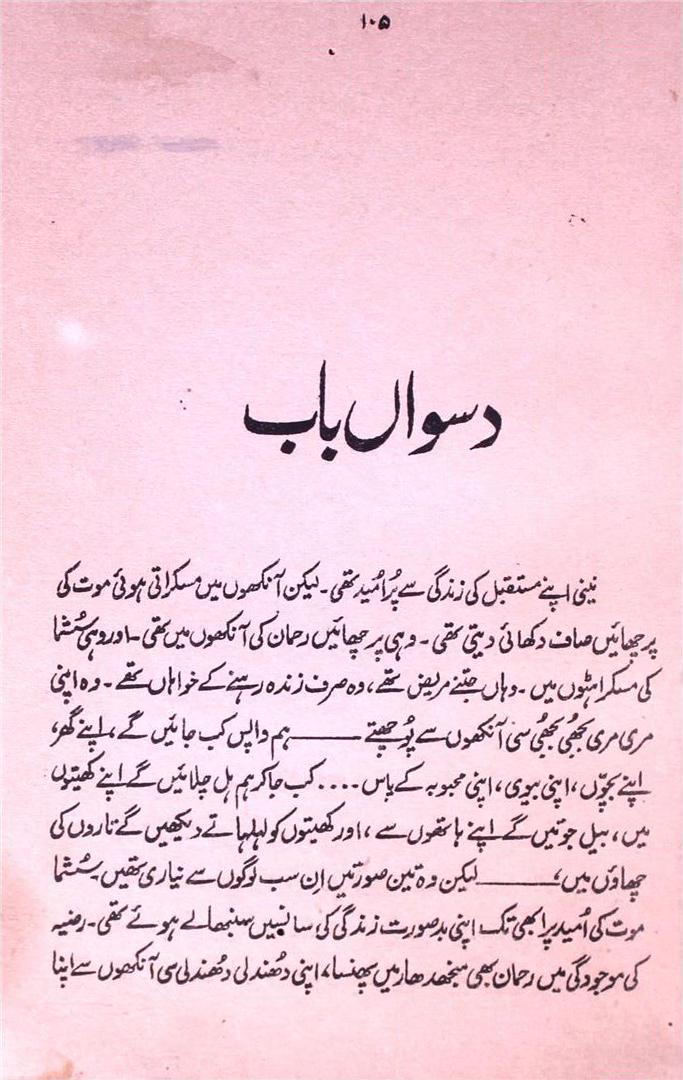 ۱۰۵
دسواں باب
نینی اپنے مستقبل کی زندگی سے پُراُمید تھی۔ لیکن آنکھوں میں مسکراتی ہوئی موت کی
پرچھائیں صاف دکھائی دیتی تھی۔ وہی پرچھائیں رحمان کی آنکھوں میں تھی۔ اور وہی سُشما
کی مسکراہٹوں میں۔ وہاں جتنے مریض تھے، وہ صرف زندہ رہنے کے خواہاں تھے۔ وہ اپنی
مری مری بُجھی بُجھی سی آنکھوں سے پُوچھتے ——— ہم واپس کب جائیں گے، اپنے گھر،
اپنے بچّوں، اپنی بیوی، اپنی محبوبہ کے پاس.... کب جاکر ہم ہل چلائیں گے اپنے کھیتوں
میں، بیل جوتیں گے اپنے ہاتھوں سے، اور کھیتوں کو لہلہاتے دیکھیں گے تاروں کی
چھاؤں میں، ——— لیکن وہ تین صورتیں اِن سب لوگوں سے نیاری تھیں۔ سُشما
موت کی اُمید پر ابھی تک اپنی بدصورت زندگی کی سانسیں سنبھالے ہوئے تھی۔ رضیہ
کی موجودگی میں رحمان بھی منجھدھار میں پھنسا، اپنی دُھندلی دُھندلی سی آنکھوں سے اپنا